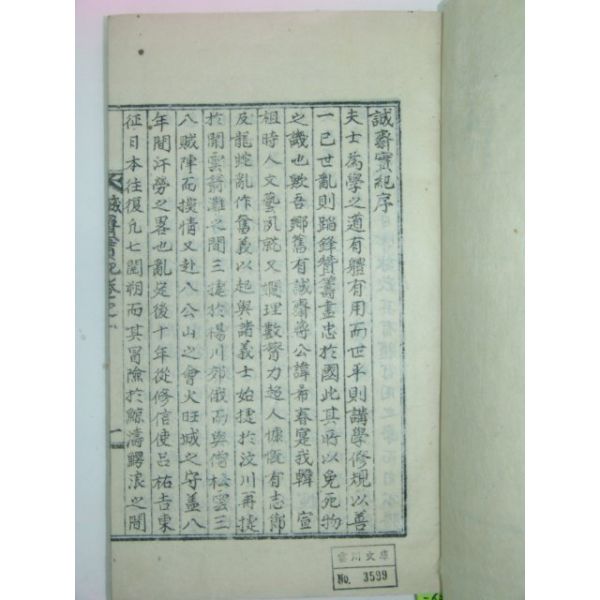 誠齋實紀序
夫士爲學之道有體有用而世平則講學修規以善
一已世亂則蹈鋒贊籌盡忠於國此其所以免死物
之譏也歟吾鄉舊有誠齋蔣公諱希春寔我韓 宣
祖時人文藝夙就又燗理數膂力超人慷慨有志節
及龍蛇亂作奮義以起與諸義士始捷於汶川再捷
於開雲箭灘之間三捷於楊川郊俄而與僧松雲三
八賊陣而探情又赴八公山之會火旺城之守盖八
年間汗勞之畧也亂定後十年從修信使呂祐吉東
征日本往復凡七閱朔而其冒險於鯨濤鰐浪之間
誠齋實紀卷之一
一
雲川文庫
No. 3599